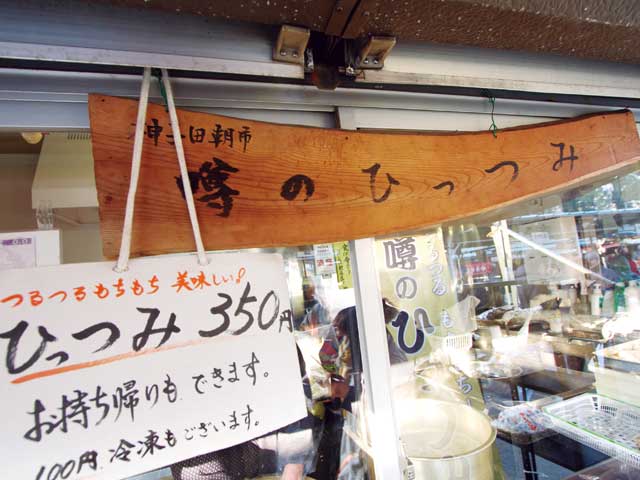 神子田朝市
噂のひっつみ
つるつるもちもち 美味しい!
ひっつみ 350円
お持ち帰りも できます。
100円 冷凍も ございます。
つるつる も
噂のひ